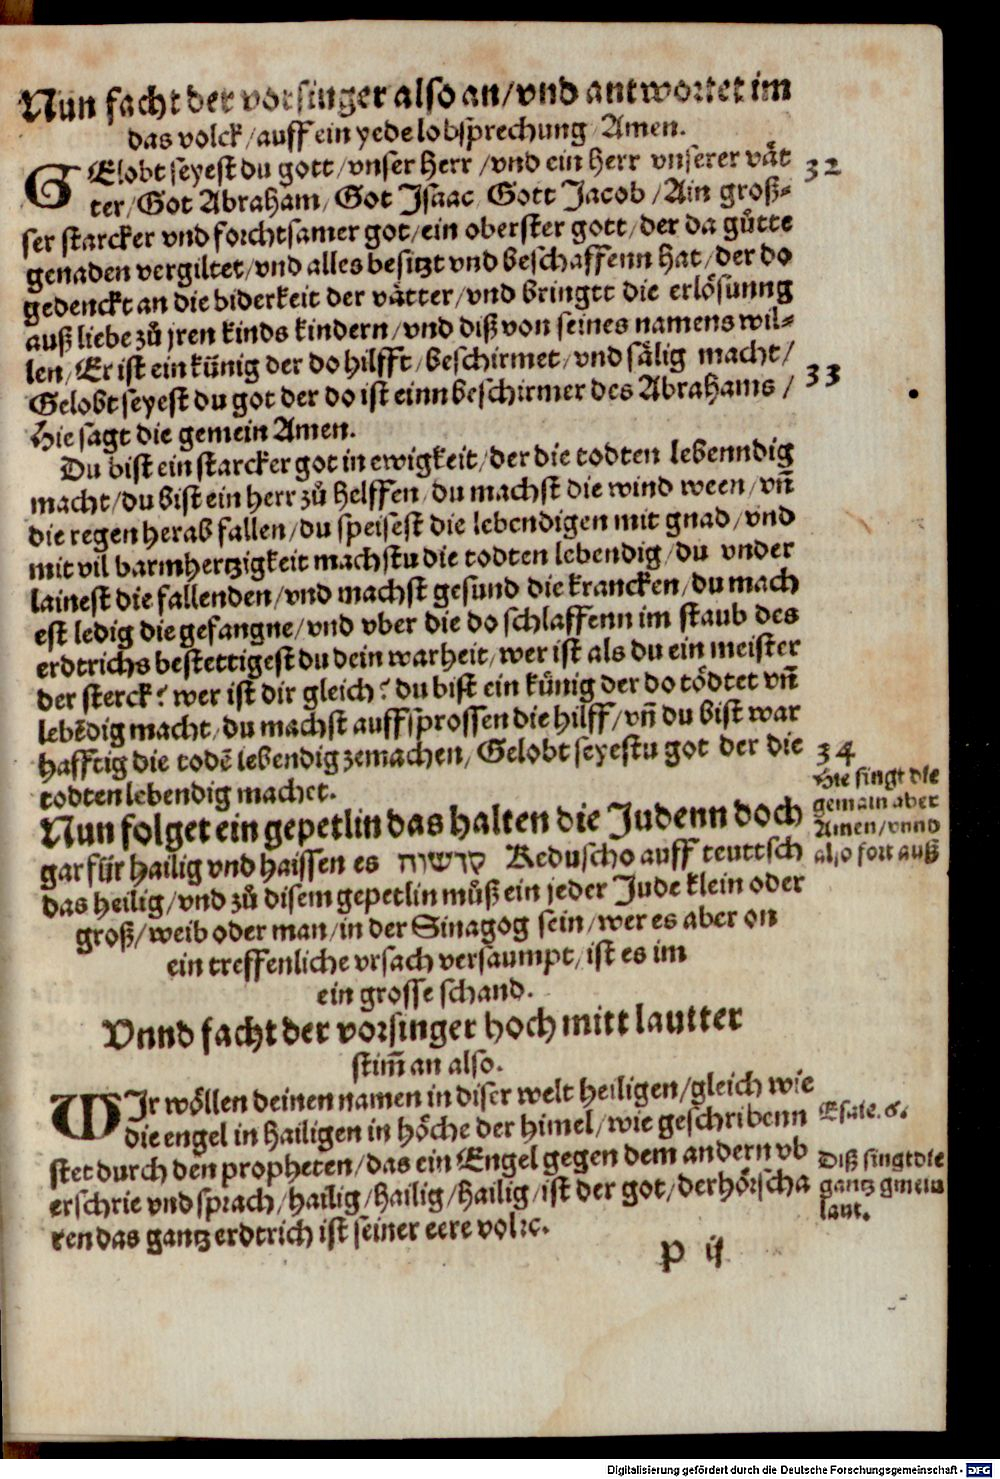 Nun facht der vorsinger also an/vnd antwortet im
das volck/auff ein yede lobsprechung/Amen.
GElobt seyest du gott/vnser Herr/vnd ein Herr vnserer vät
ter/Got Abraham/Got Isaac/Gott Jacob/Ain groß-
ser starcker vnd forchtsamer got/ein oberster gott/der da gůtte
genaden vergiltet/vnd alles besitzt vnd beschaffenn hat/der do
gedenckt an die biderkeit der vätter/vnd bringtt die erlösunng
auß liebe zů jren kinds kindern/vnd diß von seines namens wil-
len/Er ist ein künig der do hilfft/beschirmet/vnd sälig macht/
Gelobt seyest du got der do ist einn beschirmer des Abrahams/
Hie sagt die gemein Amen.
32
33
Du bist ein starcker got in ewigkeit/der die todten lebenndig
macht/du bist ein herr zů helffen/du machst die wind ween/vñ
die regen herab fallen/du speisest die lebendigen mit gnad/vnd
mit vil barmhertzigkeit machstu die todten lebendig/du vnder
lainest die fallenden/vnd machst gesund die krancken/du mach
est ledig die gefangne/vnd vber die do schlaffenn im staub des
erdtrichs bestettigest du dein warheit/wer ist als du ein meister
der sterck? wer ist dir gleich? du bist ein künig der do tödtet vñ
lebẽdig macht/du machst auffsprossen die hilff/vñ du bist war
hafftig die todẽ lebendig zemachen/Gelobt seyestu got der die
todten lebendig machet.
34
Hie singt die
gemain aber
Amen/vnnd
also fort auß
Nun folget ein gepetlin das halten die Judenn doch
gar für hailig vnd haissen es קדשוה Keduscho auff teuttsch
das heilig/vnd zů disem gepetlin můß ein jeder Jude klein oder
groß/weib oder man/in der Sinagog sein/wer es aber on
ein treffenliche vrsach versaumpt/ist es im
ein grosse schand.
Vnnd facht der vorsinger hoch mitt lautter
stim̃ an also.
WIr wöllen deinen namen in diser welt heiligen/gleich wie
die engel in hailigen in höche der himel/wie geschribenn
stet durch den propheten/das ein Engel gegen dem andern vb
erschrie vnd sprach/hailig/hailig/hailig/ist der got/der hörscha
ren das gantz erdtrich ist seiner eere vol ꝛc.
Esaie. 6.
Diß singt die
gantz gmein
laut.
P ij
Digitalisierung gefördert durch die Deutsche Forschungsgemeinschaft - DFG